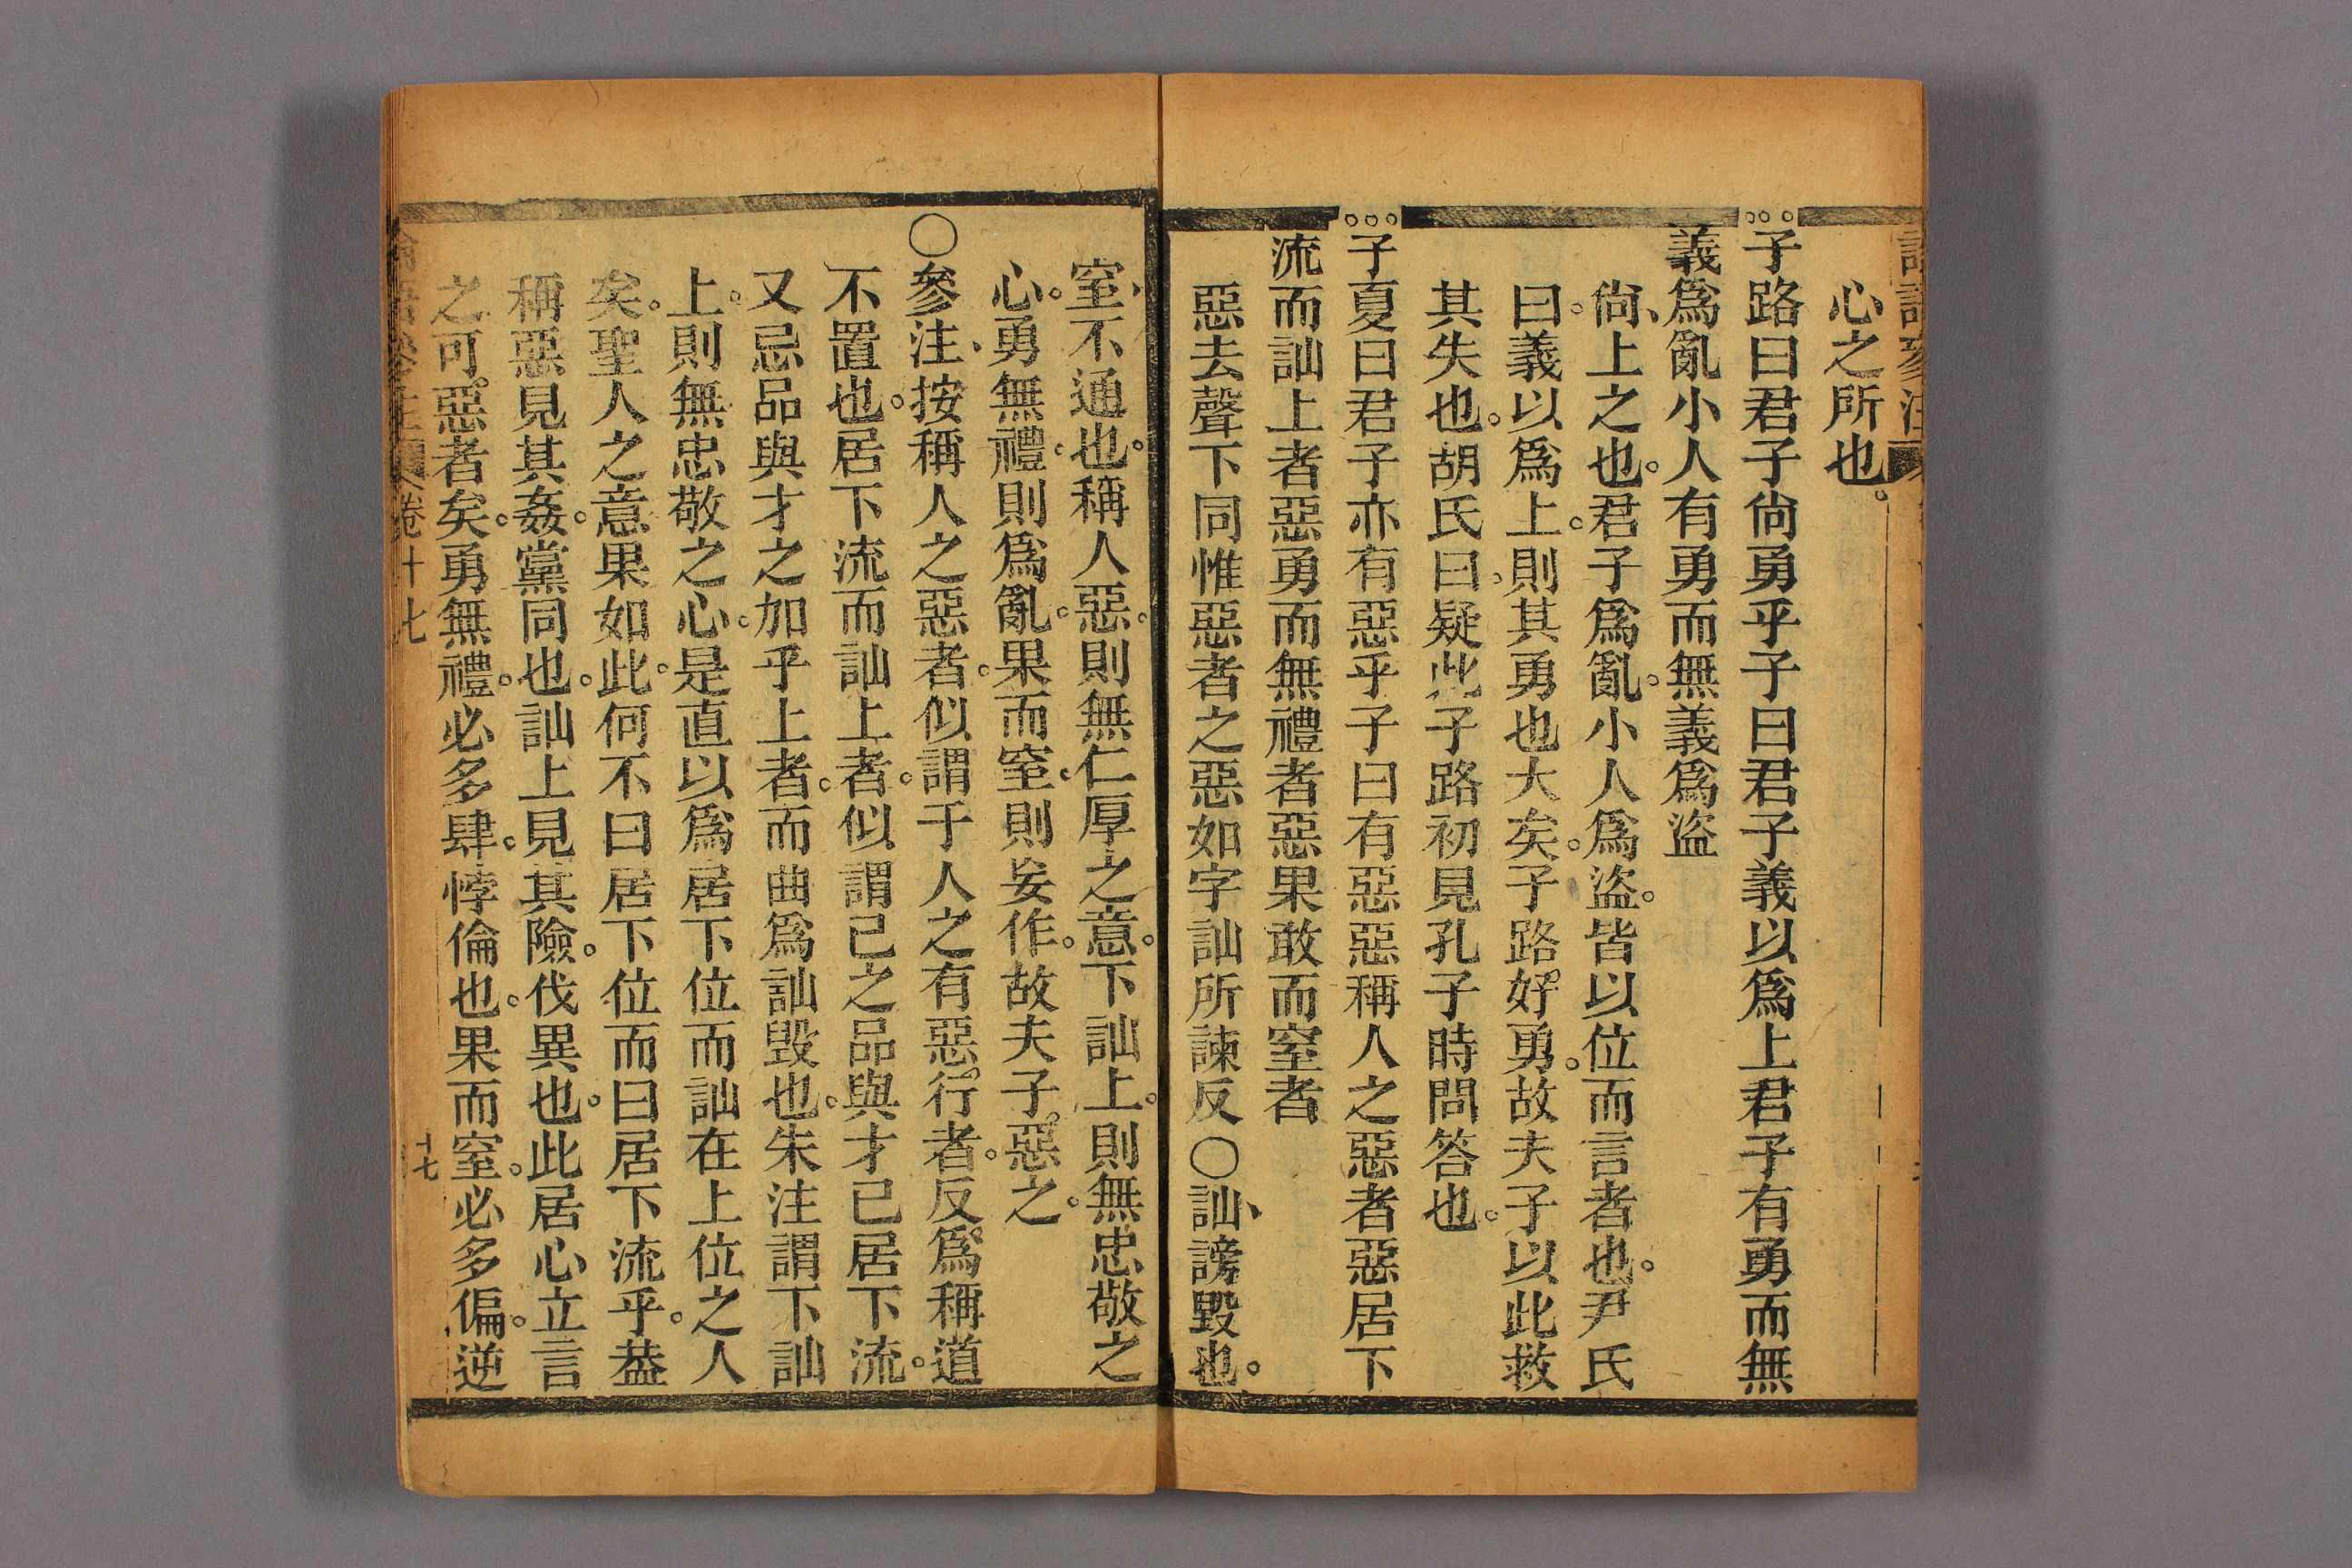 心之所也。
子路曰君子尙勇乎子曰君子義以爲上君子有勇而無
義爲亂小人有勇而無義爲盜
尙、上之也。君子爲亂。小人爲盜。皆以位而言者也。尹氏
曰。義以爲上。則其勇也大矣。子路好勇。故夫子以此救
其失也。胡氏曰。疑此子路初見孔子時問答也。
子夏曰君子亦有惡乎子曰有惡惡稱人之惡者惡居下
流而訕上者惡勇而無禮者惡果敢而窒者
惡去聲下同惟惡者之惡如字訕所諫反〇訕、謗毀也。
窒、不通也。稱人惡。則無仁厚之意。下訕上。則無忠敬之
心。勇無禮。則爲亂。果而窒。則妄作。故夫子惡之。
〇參注、按稱人之惡者。似謂于人之有惡行者。反爲稱道
不置也。居下流而訕上者。似謂己之品與才已居下流。
又忌品與才之加乎上者。而曲爲訕毀也。朱注謂下訕
上。則無忠敬之心。是直以爲居下位而訕在上位之人
矣。聖人之意果如此。何不曰居下位而曰居下流乎。葢
稱惡見其姦。黨同也。訕上見其險。伐異也。此居心立言
之可惡者矣。勇無禮。必多肆。悖倫也。果而窒。必多偏。逆
卷十七
十七